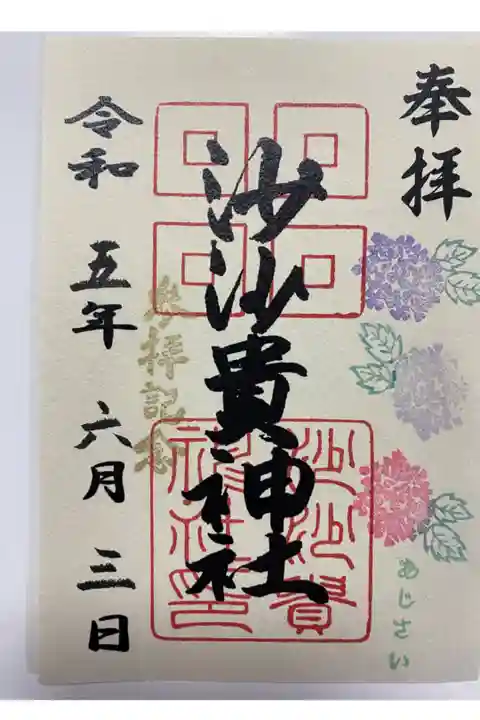 奉拝
あじさい
沙沙貴神社
沙沙貴
神社印
参拝記念
令和 五年 六月 三日